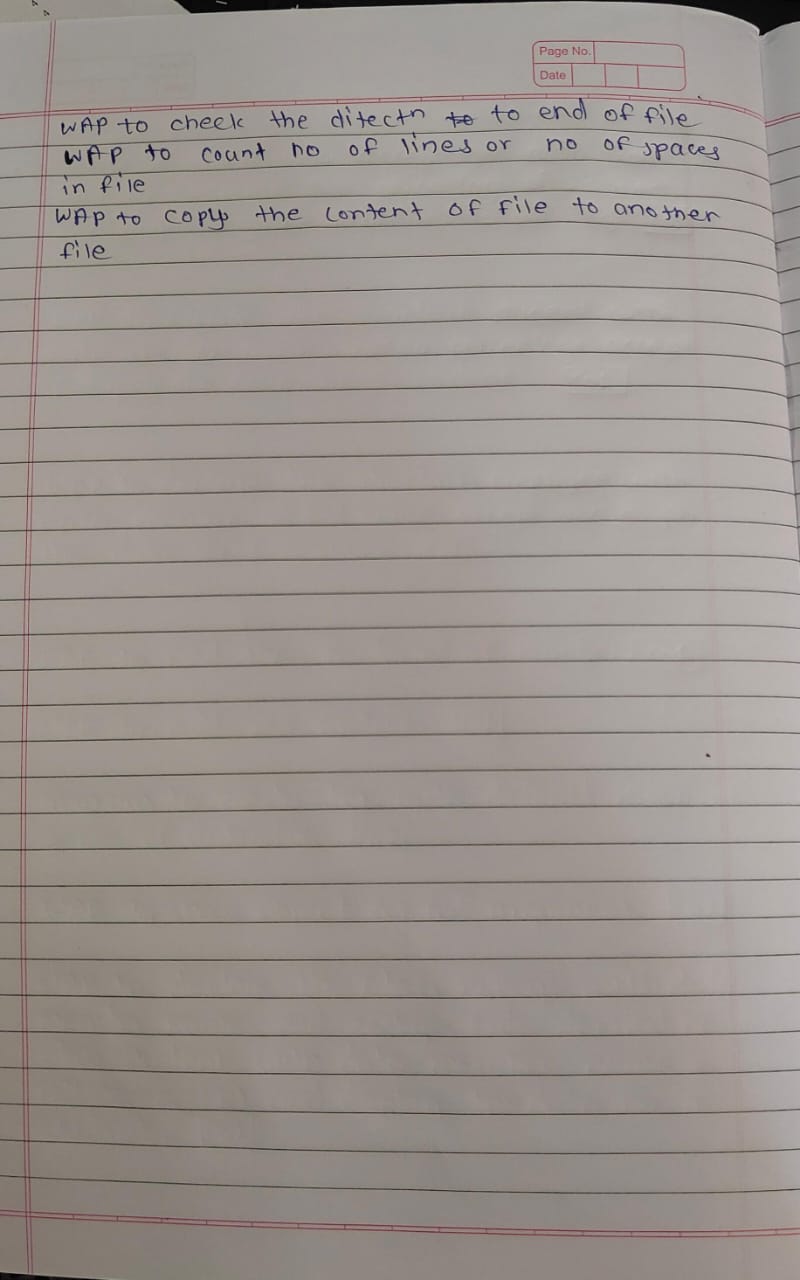 Page No.
Date
WAP to check the ditectn to to end of file
WAP to count no of lines or no of spaces
in file
WAP to copy the content of file to another
file